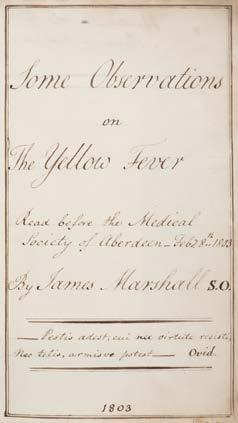 Some Observations
on
The Yellow Fever
Read before the Medical
Society of Aberdeen_ Feb 28th 1803
By James Marshall S.O.
_ Pestis adest, cui nec virtute resisti,
Nec telis, armisve potest_ Ovid.
1803